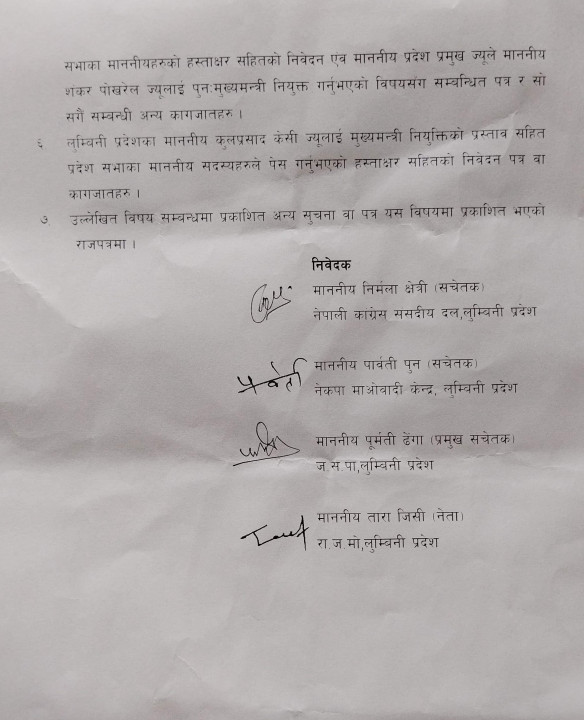 सभाका माननीयहरुको हस्ताक्षर सहितको निवेदन एंव माननीय प्रदेश प्रमुख ज्यूले माननीय
शंकर पोखरेल ज्यूलाई पुनःमुख्यमन्त्री नियुक्त गर्नुभएको विषयसंग सम्बन्धित पत्र र सो
सगैं सम्बन्धी अन्य कागजातहरु ।
६ लुम्बिनी प्रदेशका माननीय कुलप्रसाद केसी ज्यूलाई मुख्यमन्त्री नियुक्तिको प्रस्ताव सहित
प्रदेश सभाका माननीय सदस्यहरुले पेस गर्नुभएको हस्ताक्षर सहितको निवेदन पत्र वा
कागजातहरु ।
७ उल्लेखित विषय सम्बन्धमा प्रकाशित अन्य सुचना वा पत्र यस विषयमा प्रकाशित भएको
राजपत्रमा ।
निवेदक
माननीय निर्मला क्षेत्री (सचेतक)
नेपाली कांग्रेस ससदीय दल,लुम्बिनी प्रदेश
पार्वती
माननीय पार्वती पुन (सचेतक)
नेकपा माओवादी केन्द्र, लुम्बिनी प्रदेश
माननीय पूर्मती ढेंगा (प्रमुख सचेतक)
ज.स.पा,लुम्बिनी प्रदेश
माननीय तारा जिसी (नेता)
रा.ज.मो,लुम्बिनी प्रदेश